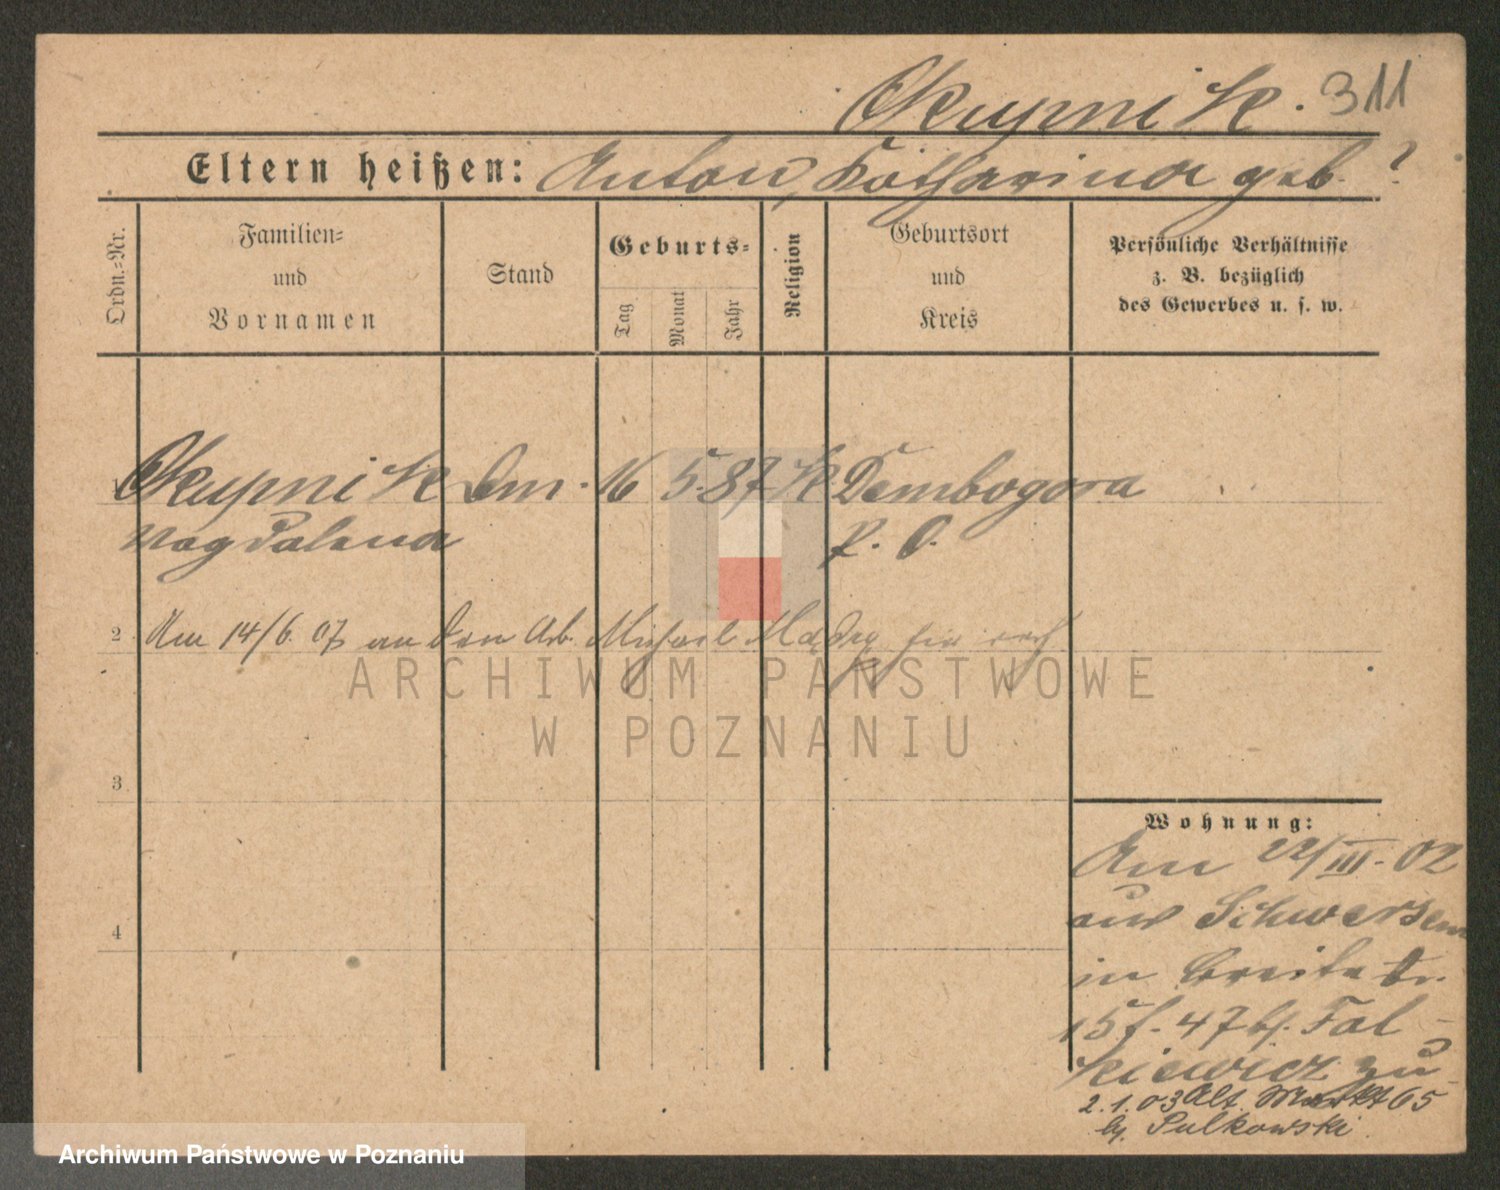 Okupnik. 311
Eltern heißen: Anton, Katharina geb. ?
Ordn.-Nr.
Familien-
und
Vornamen
Stand
Geburts-
Tag
Monat
Jahr
Religion
Geburtsort
und
Kreis
Persönliche Verhältnisse
z. B. bezüglich
des Gewerbes u. s. w.
1 Okupnik 16 5. 87 K Dembogora
Magdalena P. O.
2 Am 14/6. 07 an den Arb. Michael
3
4
Wohnung:
Am 22/III. 02
aus Schwersenz
in Breite Str.
15 47 bj. Fal-
kiewicz zu
2.1.03 Alt. Markt 65
bj. Sulkowski.
ARCHIWUM PAŃSTWOWE
W POZNANIU
Archiwum Państwowe w Poznaniu